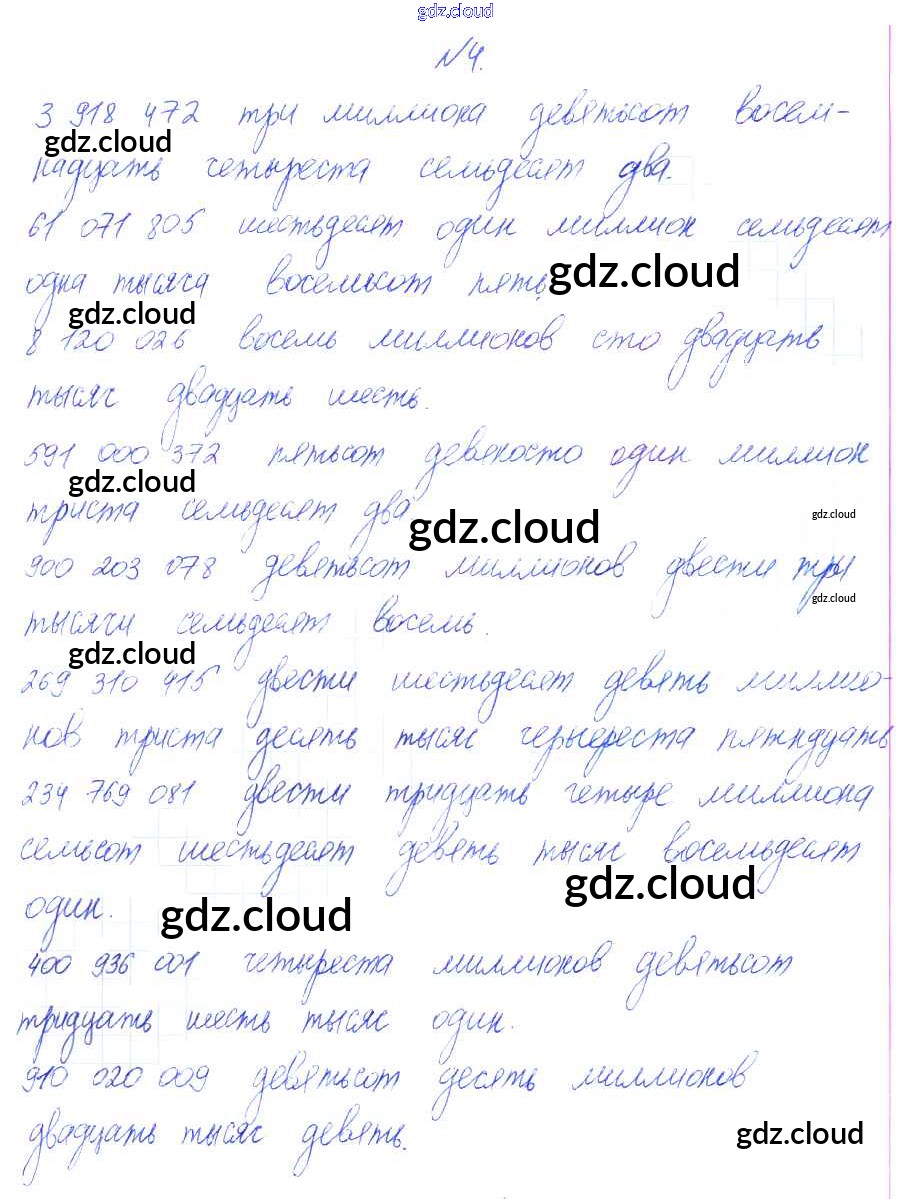 gdz.cloud
№4.
3 918 472 три миллиона девятьсот восем-
gdz.cloud
надцать четыреста семьдесят два.
61 071 805 шестьдесят один миллион семьдесят
gdz.cloud
одна тысяча восемьсот пять
gdz.cloud
8 120 026 восемь миллионов сто двадцать
тысяч двадцать шесть.
591 000 372 пятьсот девяносто один миллион
gdz.cloud
триста семьдесят два
gdz.cloud
gdz.cloud
900 203 078 девятьсот миллионов двести три
gdz.cloud
тысячи семьдесят восемь.
gdz.cloud
269 310 415 двести шестьдесят девять миллио-
нов триста десять тысяч черыереста пятндцать
234 769 081 двести тридцать четыре миллиона
семьсот шестьдесят девять тысяч восемьдесят
gdz.cloud
один.
gdz.cloud
400 936 001 четыреста миллионов девятьсот
тридцать шесть тысяч один.
910 020 009 девятьсот десять миллионов
двадцать тысяч девять.
gdz.cloud